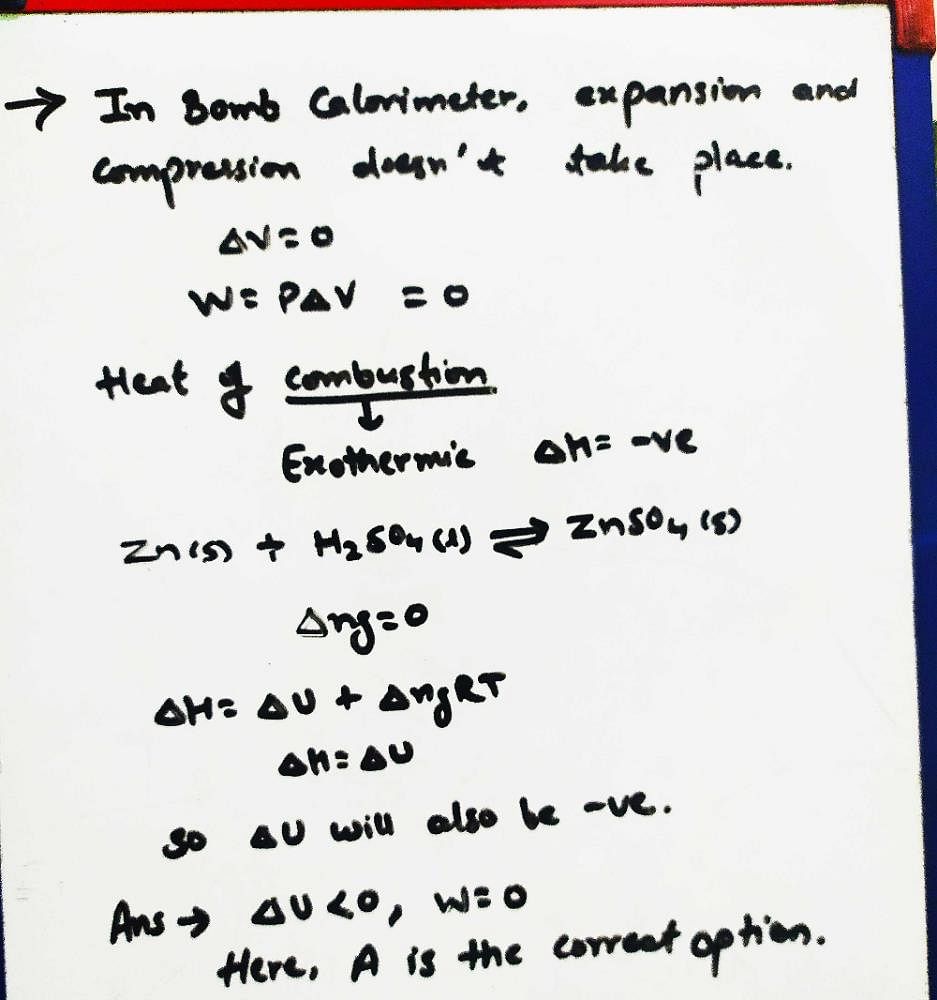 → In Bomb Calorimeter, expansion and
compression doesn't take place.
ΔV = 0
W = PΔV = 0
Heat of combustion
↓
Exothermic ΔH = -ve
Zn(s) + H₂SO₄(l) ⇌ ZnSO₄(s)
Δng = 0
ΔH = ΔU + ΔngRT
ΔH = ΔU
so ΔU will also be -ve.
Ans → ΔU < 0, W = 0
Here, A is the correct option.